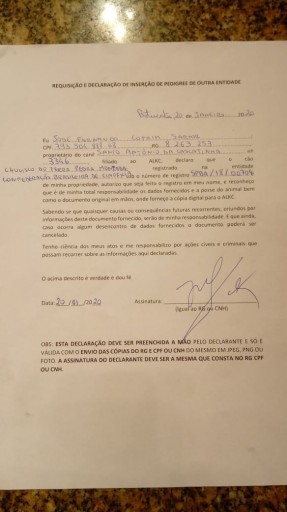 REQUISIÇÃO E DECLARAÇÃO DE INSERÇÃO DE PEDIGREE DE OUTRA ENTIDADE
20 de JANEIRO / 2020
Eu JOSÉ FERNANDO
CPF RG 8 263 253
proprietário do canil SANTO ANTÔNIO DA nº
3346 filiado ao ALKC, declaro que o cão
DA PEDRA MONTANA registrado na entidade
CONFEDERAÇÃO BRASILEIRA DE CINOFILIA sob o número de registro
de minha propriedade, autorizo que seja feito o registro em meu nome, e reconheço
que é de minha total responsabilidade os dados fornecidos e a posse do animal bem
como o documento original em mãos, onde forneço a cópia digital para o ALKC.
Sabendo se que quaisquer causas ou consequências futuras recorrentes, oriundos por
informações deste documento fornecido, serão de minha responsabilidade. E que ainda,
caso ocorra algum desencontro de dados fornecidos o documento poderá ser
cancelado.
Tomo ciência dos meus atos e me responsabilizo por ações cíveis e criminais que
possam recorrer sobre as informações aqui declaradas.
O acima descrito é verdade e dou fé
Data: 20 /01 /2020 Assinatura:
(Igual ao RG ou CNH)
OBS: ESTA DECLARAÇÃO DEVE SER PREENCHIDA A MÃO PELO DECLARANTE E SÓ E
VÁLIDA COM O ENVIO DAS CÓPIAS DO RG E CPF OU CNH DO MESMO EM JPEG, PNG OU
FOTO. A ASSINATURA DO DECLARANTE DEVE SER A MESMA QUE CONSTA NO RG CPF
OU CNH.